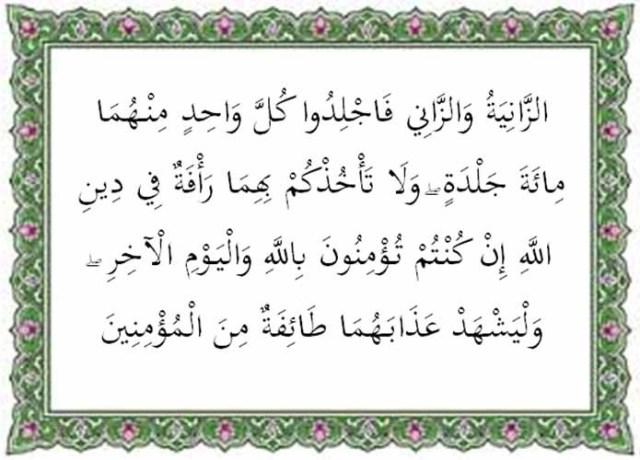 الزَّانِيَةُ وَالزَّانِي فَاجْلِدُوا كُلَّ وَاحِدٍ مِنْهُمَا
مِائَةَ جَلْدَةٍ ۖ وَلَا تَأْخُذْكُمْ بِهِمَا رَأْفَةٌ فِي دِينِ
اللَّهِ إِنْ كُنْتُمْ تُؤْمِنُونَ بِاللَّهِ وَالْيَوْمِ الْآخِرِ ۖ
وَلْيَشْهَدْ عَذَابَهُمَا طَائِفَةٌ مِنَ الْمُؤْمِنِينَ